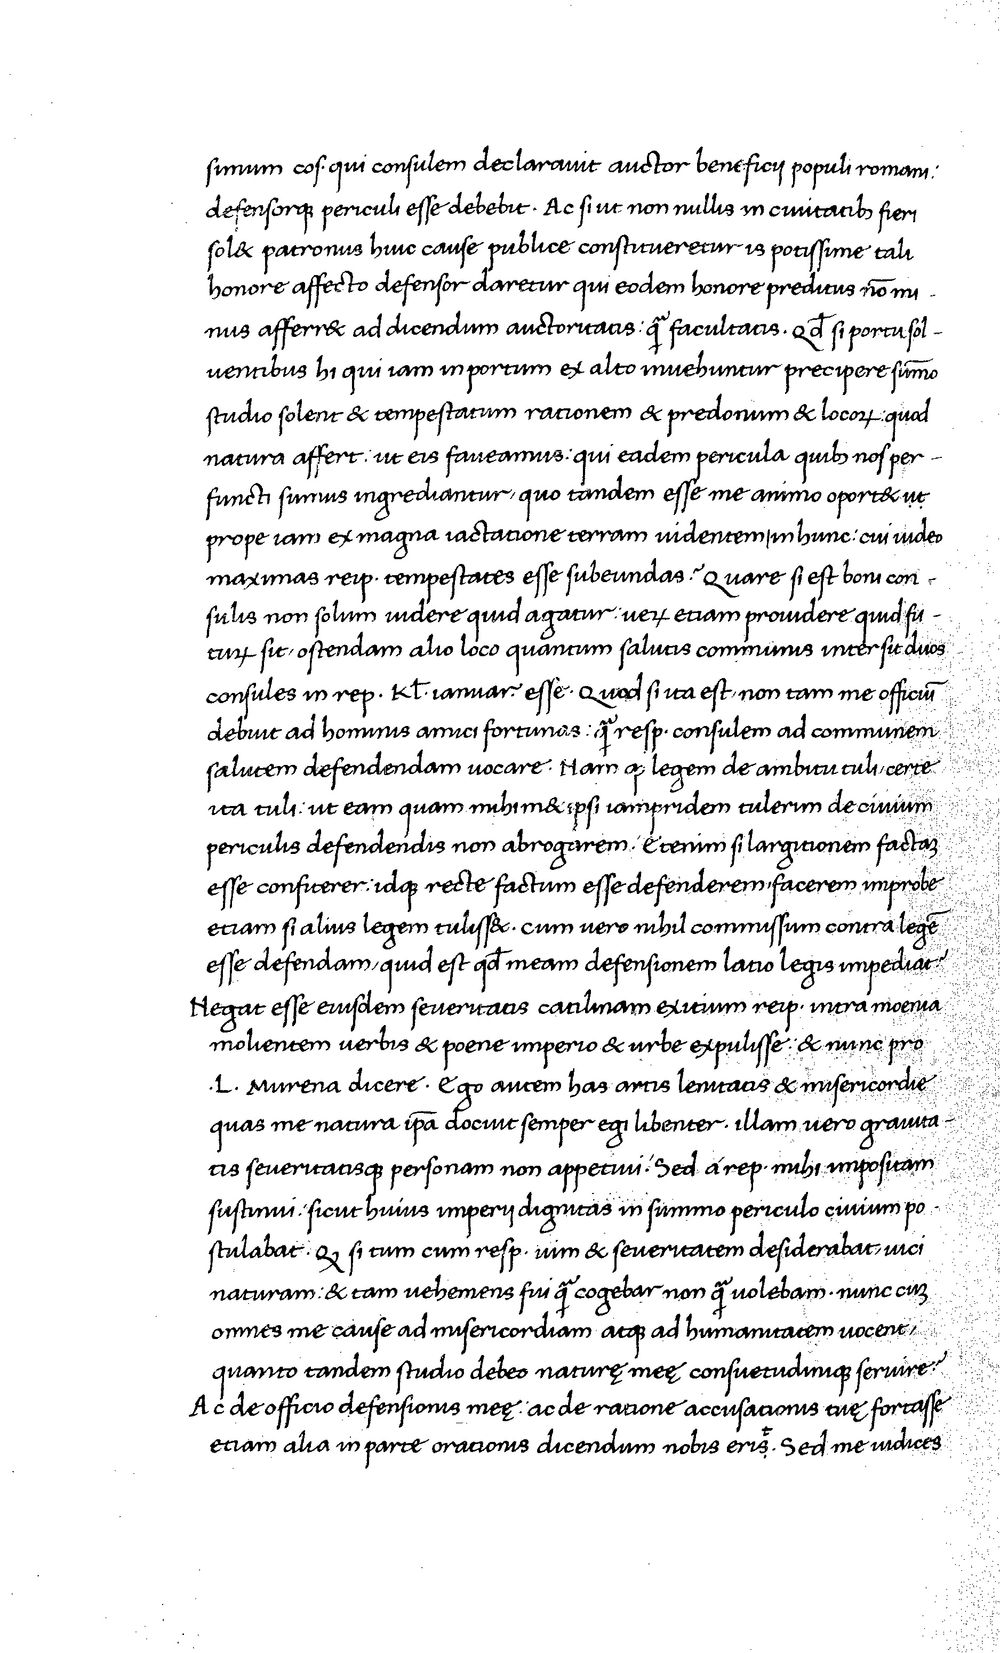 simum cos. qui consulem declarauit auctor beneficij populi romani:
defensorq; periculi esse debebit. Ac si ut non nullis in ciuitatib; fieri
sol& patronus huic cause publice constitueretur is potissime tali
honore affecto defensor daretur qui eodem honore preditus nō mi-
nus afferr& ad dicendum auctoritatis: q̄ facultatis. Qđ si portu sol-
uentibus hi qui iam in portum ex alto inuehuntur precipere sūmo
studio solent & tempestatum rationem & predonum & locoꝝ: quod
natura affert: ut eis faueamus: qui eadem pericula quib; nos per-
functi sumus ingrediantur, quo tandem esse me animo oport& ut
prope iam ex magna iactatione terram uidentem, in hunc: cui uideo
maximas reip. tempestates esse subeundas? Quare si est boni con-
sulis non solum uidere quid agatur: ueꝝ etiam prouidere quid fu-
tuꝝ sit, ostendam alio loco quantum salutis communis intersit duos
consules in rep. Kl. ianuar. esse. Quod si ita est, non tam me officiū
debuit ad hominis amici fortunas: q̄ resp. consulem ad communem
salutem defendendam uocare. Nam ꝙ legem de ambitu tuli, certe
ita tuli: ut eam quam mihim& ipsi iampridem tulerim de ciuium
periculis defendendis non abrogarem. Etenim si largitionem factaꝫ
esse confiterer: idq; recte factum esse defenderem, facerem improbe
etiam si alius legem tuliss&. cum uero nihil commissum contra legē
esse defendam, quid est qđ meam defensionem latio legis impediat?
Negat esse eiusdem seueritatis catilinam exitium reip. intra moenia
molientem uerbis & poene imperio & urbe expulisse: & nunc pro
.L. Murena dicere. Ego autem has artis lenitatis & misericordie
quas me natura ip̄a docuit semper egi libenter. illam uero grauita-
tis seueritatisq; personam non appetiui: Sed a rep. mihi impositam
sustinui: sicut huius imperij dignitas in summo periculo ciuium po-
stulabat. Ꝙ si tum cum resp. uim & seueritatem desiderabat, uici
naturam: & tam uehemens fui q̄ cogebar non q̄ uolebam. nunc cuꝫ
omnes me cause ad misericordiam atq; ad humanitatem uocent,
quanto tandem studio debeo naturę meę consuetudiniq; seruire?
Ac de officio defensionis meę: ac de ratione accusationis tuę fortasse
etiam alia in parte orationis dicendum nobis erit. Sed me iudices